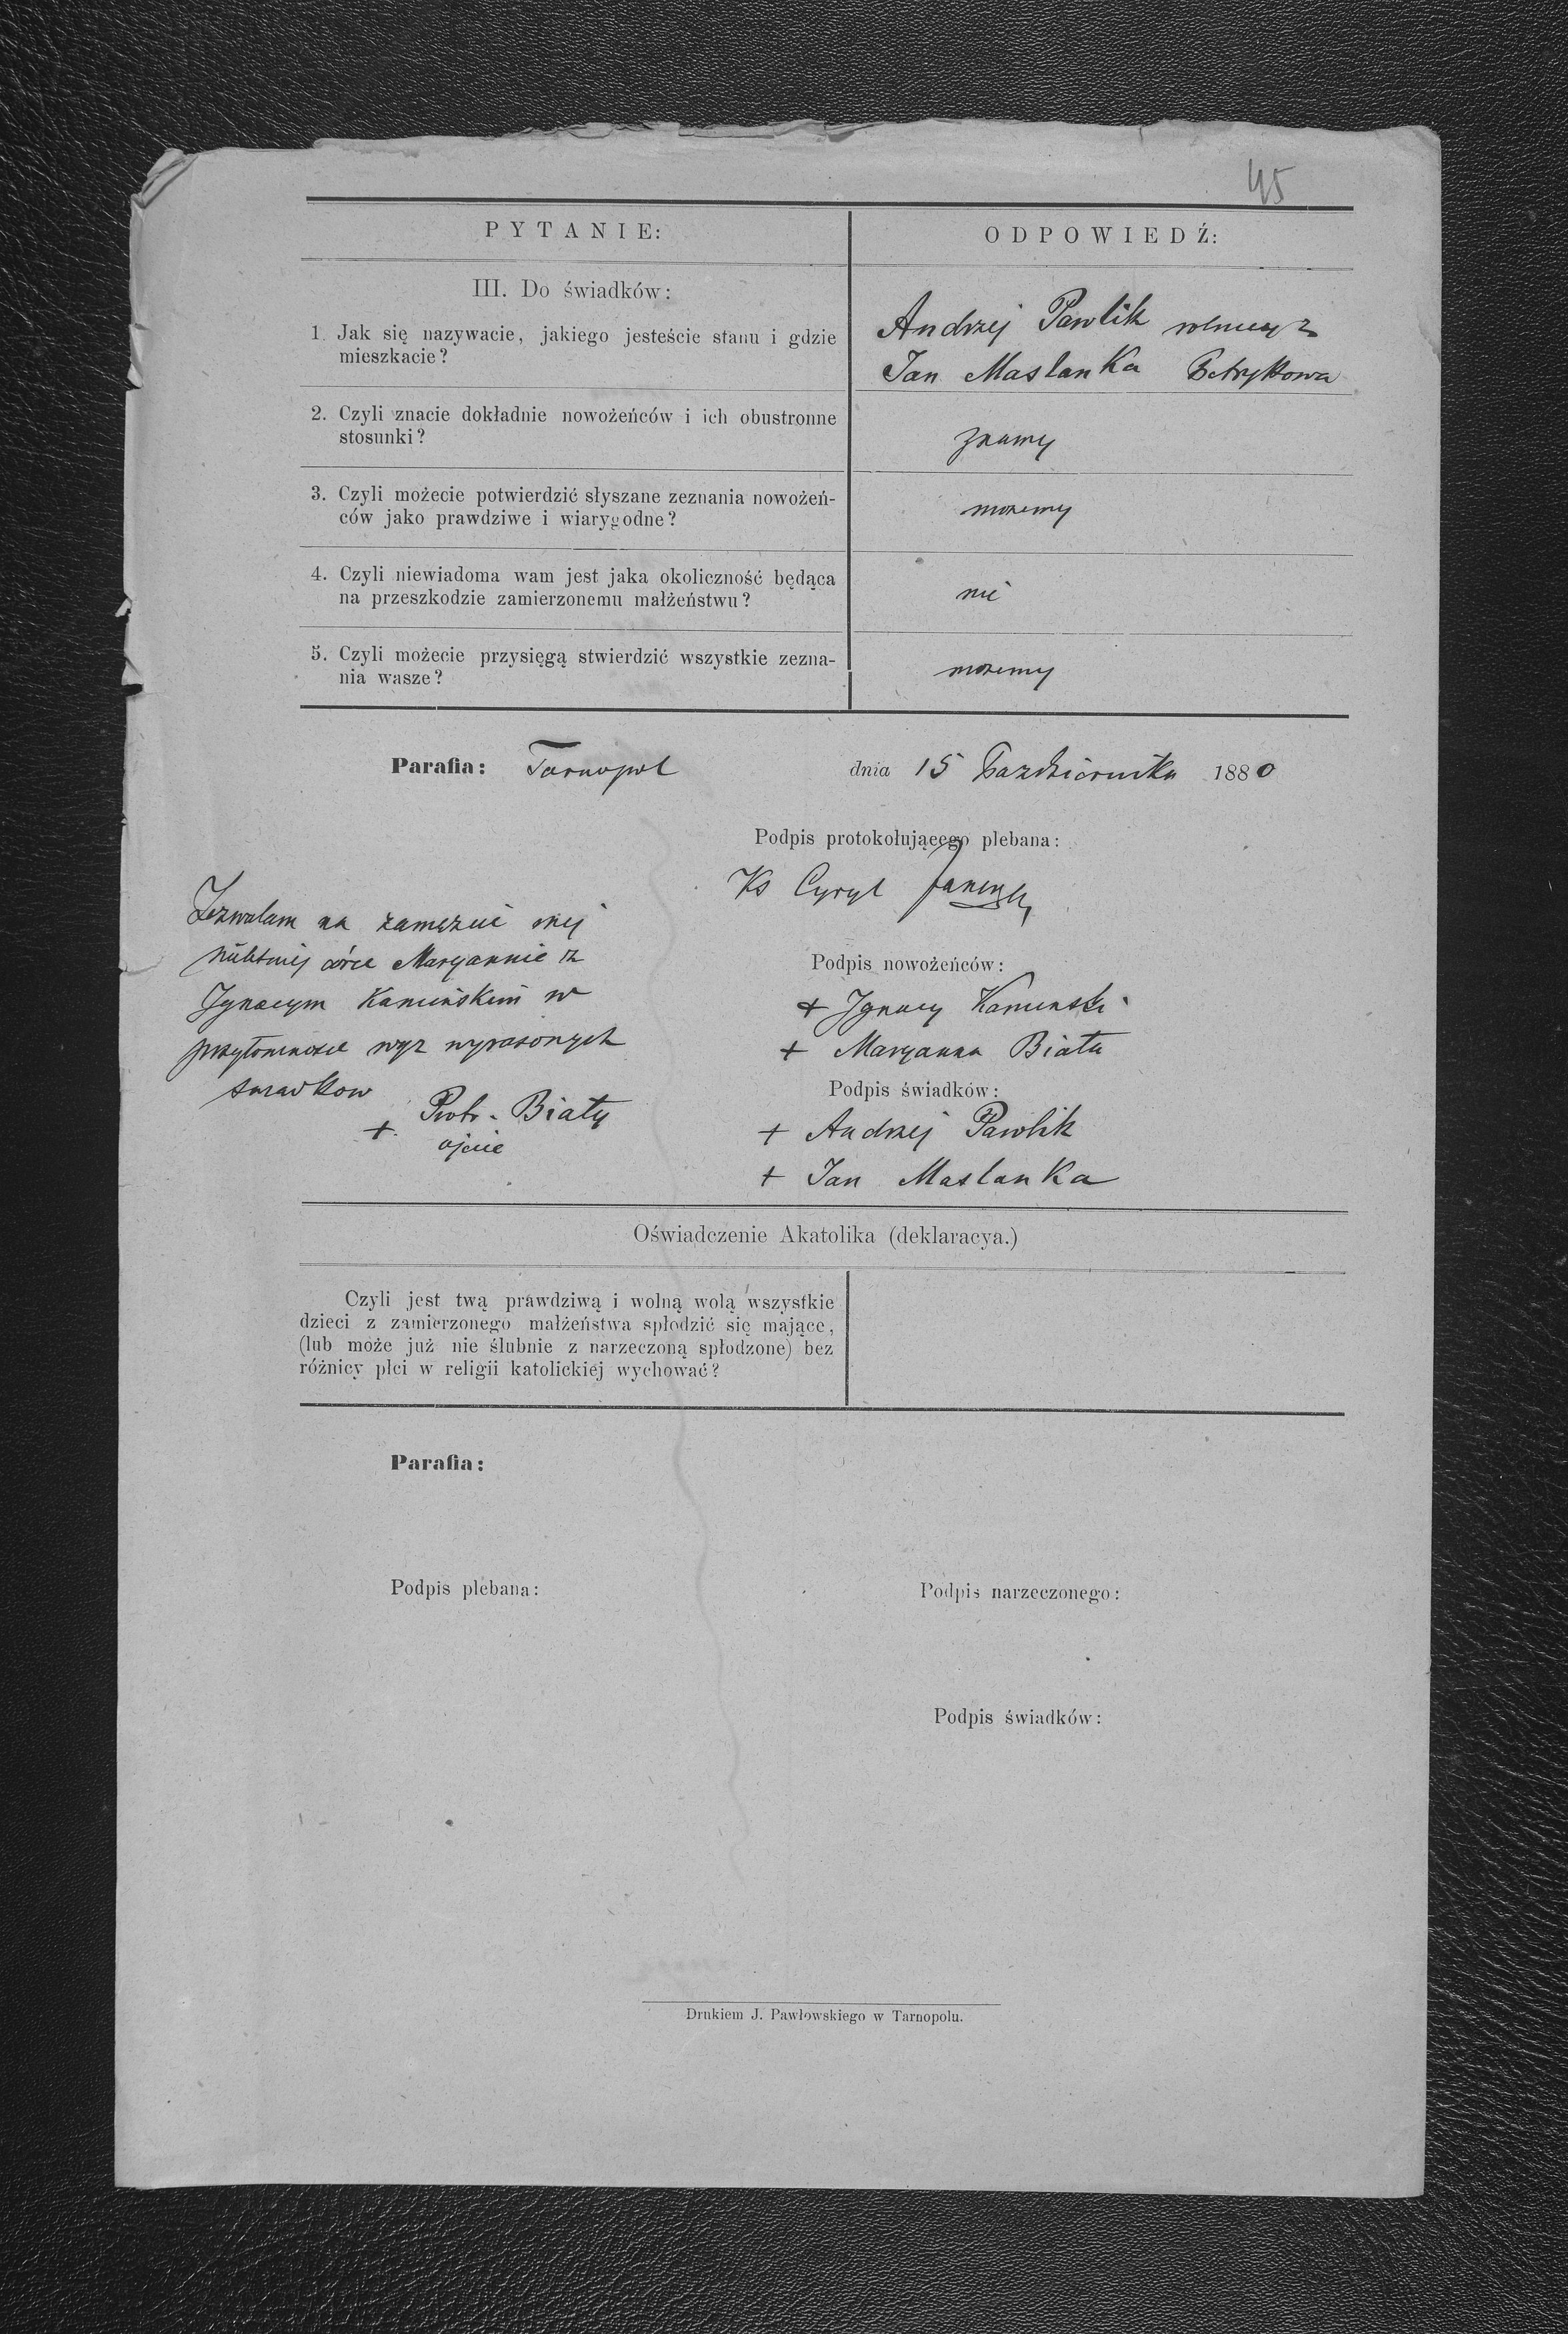 45
PYTANIE:
ODPOWIEDŹ:
III. Do świadków:
1. Jak się nazywacie, jakiego jesteście stanu i gdzie
mieszkacie?
Andrzej Pawlik rolnicy z
Jan Maslanka Petrykowa
2. Czyli znacie dokładnie nowożeńców i ich obustronne
stosunki?
znamy
3. Czyli możecie potwierdzić słyszane zeznania nowożeń-
ców jako prawdziwe i wiarygodne?
mozemy
4. Czyli niewiadoma wam jest jaka okoliczność będąca
na przeszkodzie zamierzonemu małżeństwu?
nie
5. Czyli możecie przysięgą stwierdzić wszystkie zezna-
nia wasze?
mozemy
Parafia: Tarnopol
dnia 15 Pazdziernika 1880
Podpis protokołująecego plebana:
Ks Cyryl
Zezwalam na zamęzcie mej
córce Maryannie z
Ignacym Kamińskim w
przytomnosci wyz wyrazonych
swiadkow
+ Piotr Biały
ojciec
Podpis nowożeńców:
+ Ignacy Kaminski
+ Maryanna Biała
Podpis świadków:
+ Andrzej Pawlik
+ Jan Maslanka
Oświadczenie Akatolika (deklaracya.)
Czyli jest twą prawdziwą i wolną wolą wszystkie
dzieci z zamierzonego małżeństwa spłodzić się mające,
(lub może już nie ślubnie z narzeczoną spłodzone) bez
różnicy płci w religii katolickiéj wychować?
Parafia:
Podpis plebana:
Podpis narzeczonego:
Podpis świadków:
Drukiem J. Pawłowskiego w Tarnopolu.